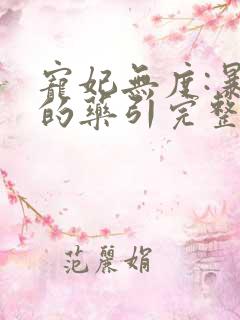 寵妃無度:暴
的藥引完整
范麗娟